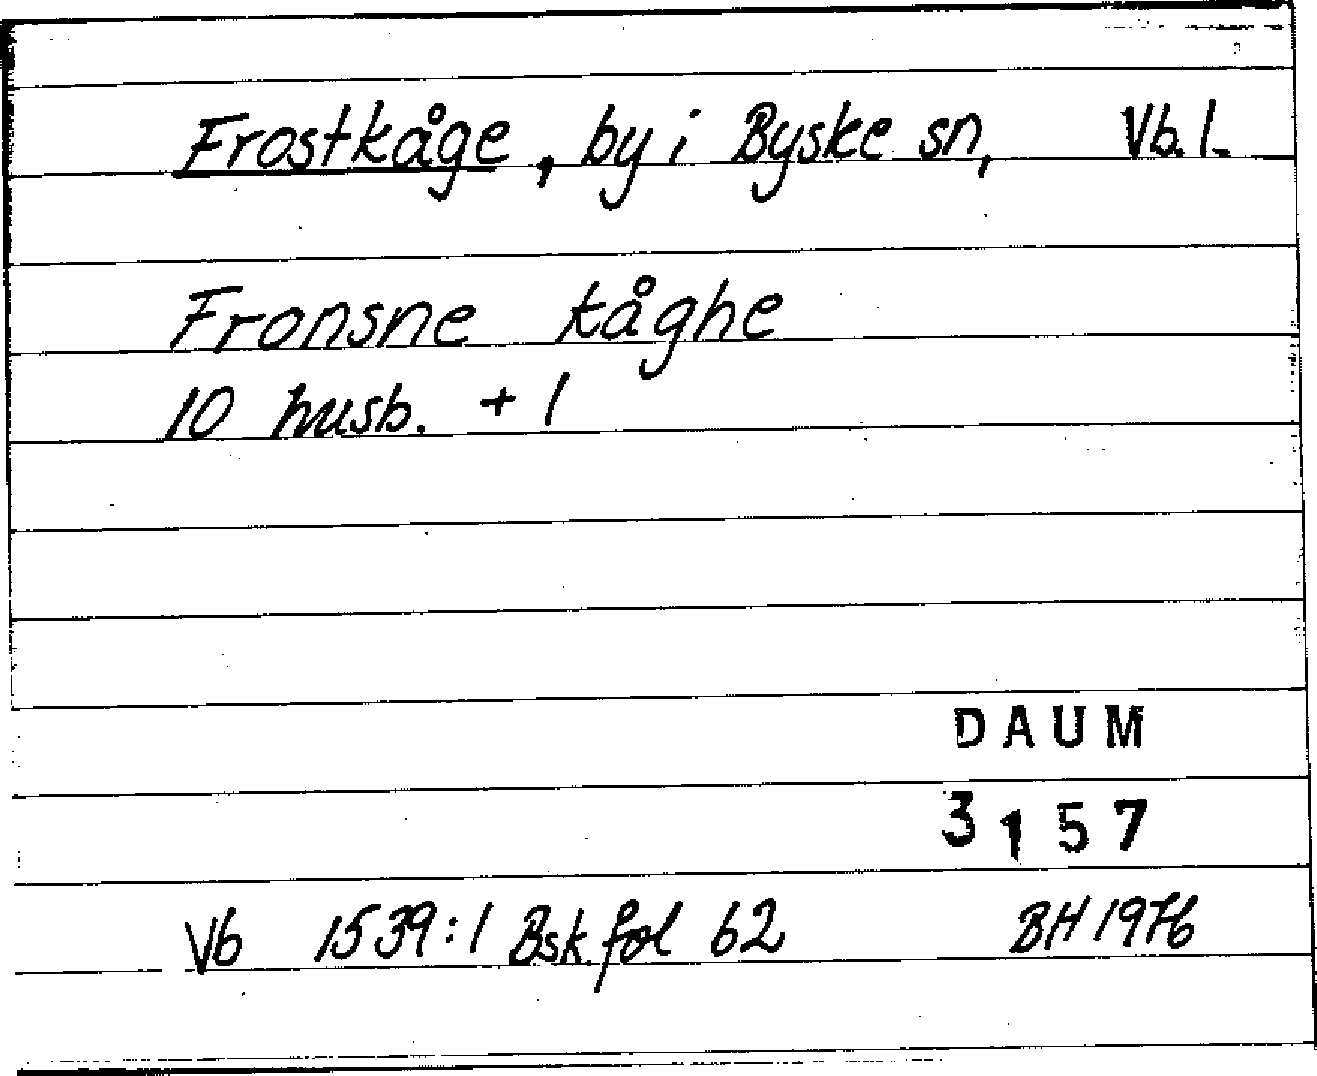 Frostkåge, by i Byske sn, Vb.l.
Fronsne kåghe
10 husb. + 1
DAUM
3157
Vb 1539:1 Bsk. fol 62 BH 1976